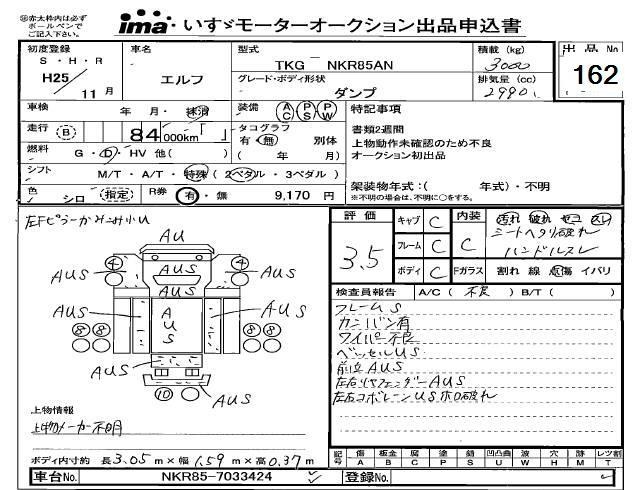 ㊟赤太枠内は必ず
ボールペンで
ご記入下さい。
ima いすゞモーターオークション出品申込書
初度登録 車名 型式 積載(kg) 出品No
S・H・R エルフ TKG NKR85AN 3000 162
H25/11月 グレード・ボディ形状 排気量(cc)
ダンプ 2990
車検 年 月・抹消 装備 AC PS PW 特記事項
走行 B 84,000km「 」 タコグラフ 書類2週間
有・無 別体 上物動作未確認のため不良
燃料 G・D・HV 他( ) ( 年 月) オークション初出品
シフト M/T・A/T・特殊(2ペダル・3ペダル) 架装物年式:( 年式)・不明
※不明の場合は、不明に○をする。
色 シロ 指定 R券 有・無 9,170 円
左Fピラーカナメ小U
評価 キャブ C 内装 汚れ 破れ セコ スレ
3.5 フレーム C C シートヘタリ破れ
ハンドルスレ
ボディ C Fガラス 割れ 線 点傷 イバリ
検査員報告 A/C( 不良 )B/T( )
フレームUS
カンバン有
ワイパー不良
ベッセルUS
前立AUS
左右リヤフェンダーAUS
左右コボレーンUSホロ破れ
AU
4 AUS AUS AUS 4
AUS AUS AUS
8 8 8 8
AUS AUS
10 AUS
上物情報
上物メーカー不明
ボディ内寸約 長3.05m×幅1.59m×高0.37m
記号 傷 A 板金 B 腐 C 塗 P 錆 S 凹凸曲 U 波 W 穴 H 跡 M レツ割 T
車台No. NKR85-7033424 登録No.